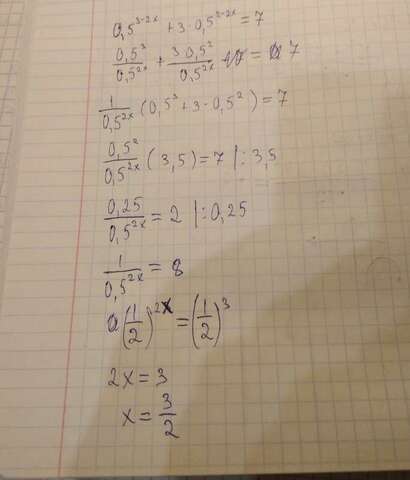 0,5^{3-2x} + 3 · 0,5^{2-2x} = 7
0,5^3/0,5^{2x} + 3·0,5^2/0,5^{2x} = 7
1/0,5^{2x} (0,5^3 + 3·0,5^2) = 7
0,5^2/0,5^{2x} (3,5) = 7 |: 3,5
0,25/0,5^{2x} = 2 |: 0,25
1/0,5^{2x} = 8
(1/2)^{2x} = (1/2)^3
2x = 3
x = 3/2